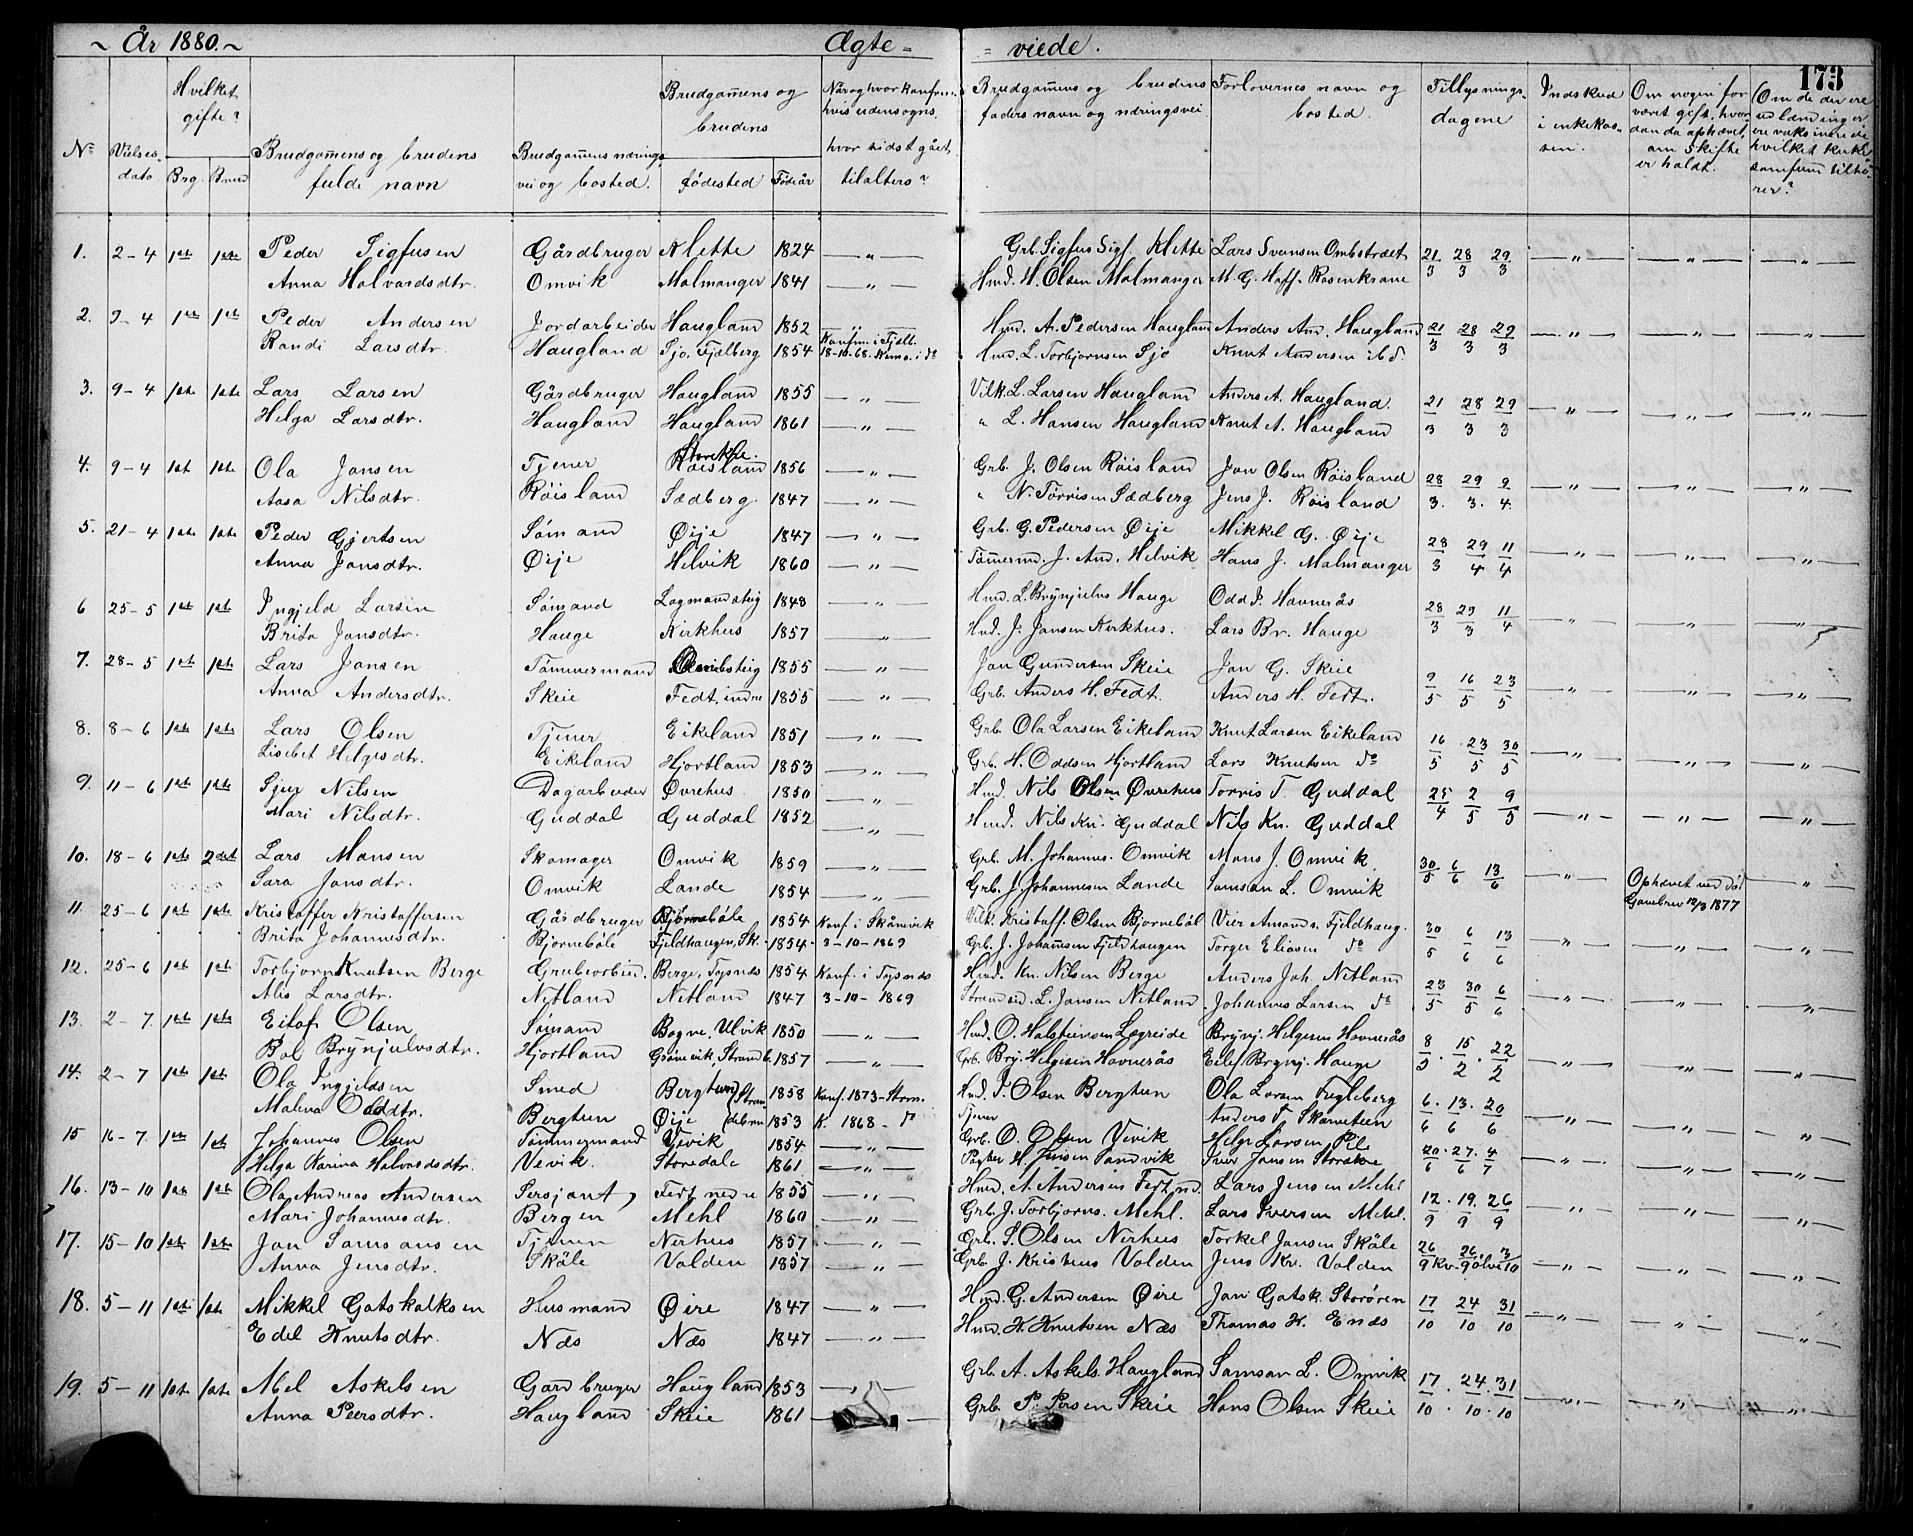 ~ År 1880. ~ Ægte = = viede. 173
Nº Vielses- dato. Hvilket gifte? Brg. Brud Brudgomens og brudens fulde navn Brudgomens nærings- vei og bosted. Brudgomens og brudens fødested Fødeår Når og hvor konfirm. hvis udensogns, hvor sidst gået til alters?
Brudgomens og brudens faders navn og næringsvei Forlovernes navn og bosted. Tillysnings- dagene Indskud i enkekas- sen. Om nogen før været gift, hvor- dan da ophævet, om skifte er holdt.
1. 2-4 1ste 1ste Peder Sigfusen Gårdbruger Klette 1824 — " — Grb. Sigfus Sigf. Klette Lars Svensen Ombstrædt 21/3 28/3 29/3 — " —
Anna Halvardsdtr. Omvik Malmanger 1841 — " — Hmd. H. Olsen Malmanger M. G. Hoff. Rosenkrans
2. 9-4 1ste 1ste Peder Andersen Jordarbeider Haugland 1852 — " — Hmd. A. Pedersen Haugland Anders And. Haugland 21/3 28/3 29/3 — " —
Randi Larsdtr. Haugland Sjo, Fjelberg 1854 Konfm. i Fjelb. 18-10-68. Hmd. L. Torbjørnsen Sjo Knut Andersen ibd.
3. 9-4 1ste 1ste Lars Larsen Gårdbruger Haugland 1855 — " — Vilk. L. Larsen Haugland Anders A. Haugland. 21/3 28/3 29/3 — " —
Helga Larsdtr. Haugland Haugland 1861 — " — " L. Hansen Haugland Knut A. Haugland
4. 9-4 1st 1ste Ola Jonsen Tjener Røisland 1856 — " — Grb. J. Olsen Røisland Jon Olsen Røisland 28/3. 29/3. 9/4. — " —
Aasa Nilsdtr. Røisland Sædberg 1847 — " — " N. Tørrisen Sædberg Jens J. Røisland
5. 21-4 1ste 1ste Peder Gjertsen Sømand Øije 1847 — " — Grb. G. Pedersen Øije Mikkel G. Øije 28/3 29/4 11/4 — " —
Anna Jonsdtr. Øije Helvik 1860 — " — Tømermd. J. And. Helvik Hans J. Malmanger
6 25-5 1ste 1ste Ingjeld Larsen Sømand Lagmandsteig 1848 — " — Hmd. L. Brynjulvs. Hauge Odd P. Havnerås 28/3 29/3 11/4 — " —
Brita Jonsdtr. Hauge Kirkhus 1857 — " — Hmd. J. Jansen Kirkhus. Lars Br. Hauge
7. 28-5 1ste 1ste Lars Jonsen Tømmermand 1855 — " — Jon Gundersen Skeie Jon G. Skeie 9/5 16/5 23/5 — " —
Anna Andersdtr. Skeie Fedt, indre 1855 — " — Grb. Anders H. Fedt. Anders H. Fedt.
8. 8-6 1ste 1ste Lars Olsen Tjener Eikeland 1851 — " — Grb. Ola Larsen Eikeland Knut Larsen Eikeland 16/5 23/5 30/5 — " —
Lisebet Helgesdtr. Eikeland Hjortland 1853 — " — Grb. H. Oddsen Hjortland Lars Knutsen do
9. 11-6 1ste 1ste Sjur Nilsen Dagarbeider Øvrehus 1850 — " — Hmd. Nils Olsen Øvrehus Torris T. Guddal 25/4 2/5 9/5 — " —
Mari Nilsdtr. Guddal Guddal 1852 — " — Hmd. Nils Kn. Guddal Nils Kn. Guddal
10. 18-6 1ste 2det Lars Monsen Skomager Omvik 1859 — " — Grb. M. Johannes. Omvik Mons J. Omvik 30/5 6/6 13/6 — " —
Sara Jonsdtr. Omvik Lande 1854 — " — Grb. J. Johannesen Lande Samson L. Omvik Ophævet ved død Gavebrev 12/3 1877
11. 25-6 1ste 1ste Kristoffer Kristoffersen Gårdbruger Bjørnebøle 1854 Konf. i Skånevik Vilk. Kristoff. Olsen Bjørnebøl Vier Amunds. Fjeldhaug. 30/5 6/6 13/6 — " —
Brita Johannesdtr. Bjørnebøle Fjeldhaugen, Sk. 1854 3-10-1869 Grb. J. Johannsen Fjeldhaugen Torger Eliasen do
12. 25-6 1ste 1ste Torbjørn Knutsen Berge Grubearbeid. Berge, Tysnæs 1854 Konf. i Tysnæs Hmd. Kn. Nilsen Berge Anders Joh. Netland 23/5 30/5 6/6 — " —
Alis Larsdtr. Netland Netland 1847 3-10-1869 Strandsid. L. Jonsen Netland Johannes Larsen do
13. 2-7. 1ste 1ste Eilof Olsen Sømand Bagne, Ulvik 1850 — " — Hmd. O. Halsteinsen Lægreide Brynj. Helgesen Havnerås 8/5. 15/2. 22/2 — " —
Bol Brynjulvsdtr. Hjortland Grønevik, Strandb. 1857 — " — Grb. Brj. Helgesen Havnerås Eilef Brynj. Hauge
14. 2-7 1ste 1ste Ola Ingjeldsen Smed Bergtun 1858 Konf. 1873 - Strm. Hmd. I. Olsen Bergtun Ola Larsen Fugleberg 6/6. 13/6. 20/6 — " —
Malena Odddtr. Bergtun Øije 1853 K. 1868 - do Tjener Anders T. Skarveteen
15 16-7. 1ste 1st Johannes Olsen Tømmermand Vevik 1854 — " — Grb. O. Olsen Vevik Helge Larsen Pile 20/6. 27/6. 4/7 — " —
Helga Karina Halvardsdtr. Vevik. Storedale 1861 — " — H. Jensen Sandvik Iver Jansen
16. 13-10 1ste 1ste Ola Andreas Andersen Sersjant, Fedt nedre 1855 — " — Hmd. A. Andersen Fedt nd. Lars Jensen Mehl 12/9. 19/9. 26/9 — " —
Mari Johannesdtr. Bergen Mehl 1860 — " — Grb. J. Torbjørns. Mehl. Lars Iversen Mehl.
17. 15-10 1ste 1ste Jon Samsonsen Tjener Nerhus 1857 — " — Grb. S. Olsen Nerhus Torkel Jansen Skåle 26/9 Kv. 26/9 Ølve 3/10 — " —
Anna Jensdtr. Skåle Valden 1857 — " — Grb. J. Kristens Valden Jens Kr. Valden
18. 5-11 1ste 1ste Mikkel Gotskalksen Husmand Øire 1847 — " — Hmd. G. Andersen Øire Jon Gotsk. Storøren 17/10 24/10 31/10 — " —
Edel Knutsdtr. Næs Næs 1847 — " — Hmd. K. Knutsen Næs Thomas K. Enæs
19. 5-11 1ste 1ste Abel Askelsen Gardbruger Haugland 1853 — " — Grb. A. Askels. Haugland Samson L. Omvik 17/10. 24/10. 31/10 — " —
Anna Peersdtr. Haugland Skeie 1861 Grb. P. Persen Skeie Hans Olsen Skeie